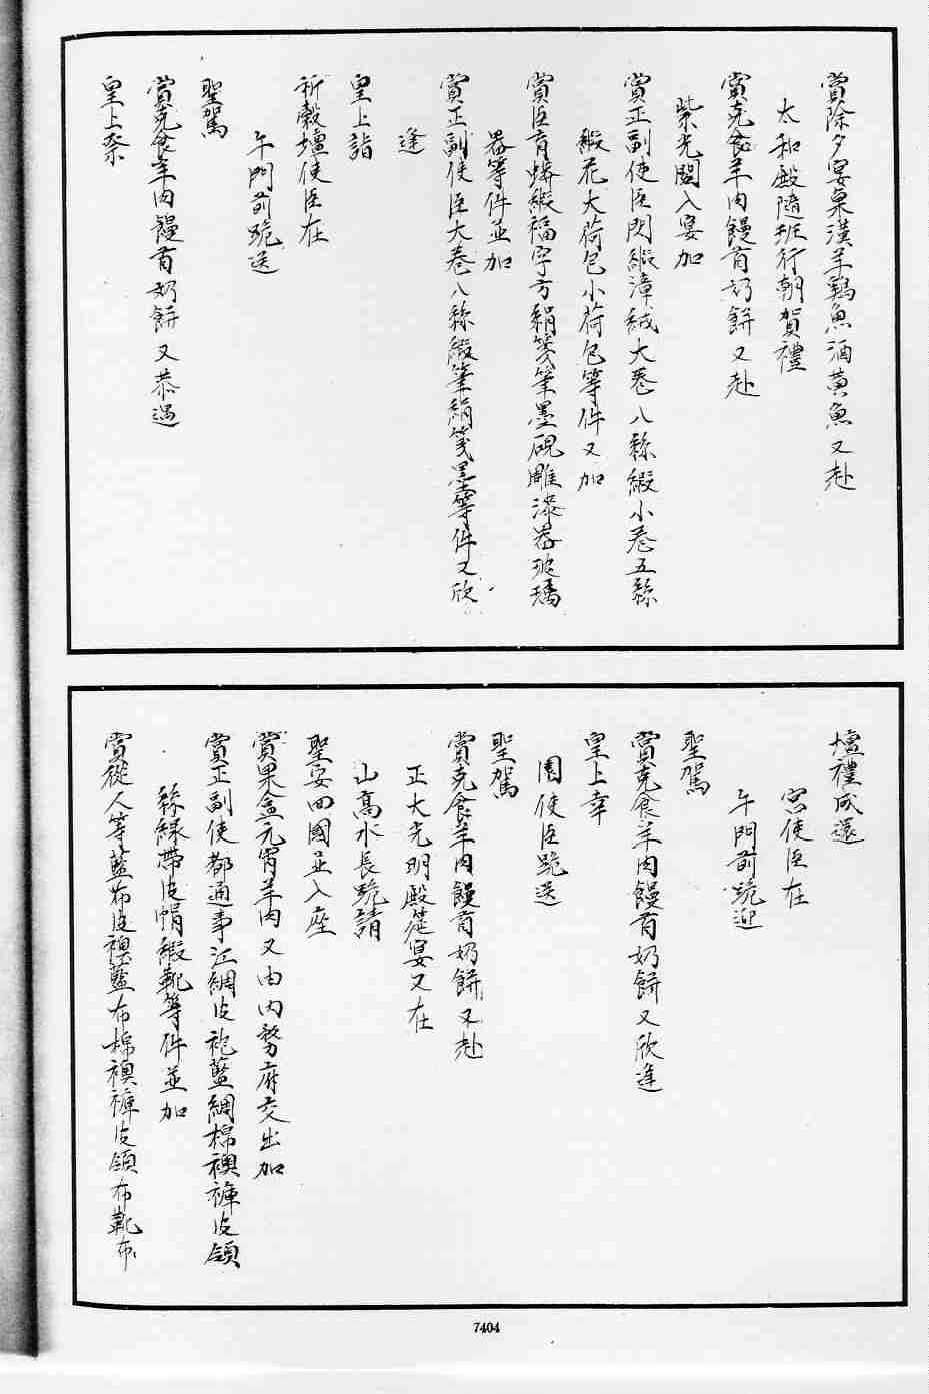 賞除夕宴桌漢羊鷄魚酒黃魚又赴
太和殿隨班行朝賀禮
賞克食羊肉饅首奶餅又赴
紫光閣入宴加
賞正副使臣閃緞漳絨大卷八絲緞小卷五絲
緞花大荷包小荷包等件又加
賞臣育蟒緞福字方絹箋筆墨硯雕漆器玻璃
器等件並加
賞正副使臣大卷八絲緞筆絹箋墨等件又欣
逢
皇上詣
祈穀壇使臣在
午門前跪送
聖駕
賞克食羊肉饅首奶餅又恭遇
皇上祭
壇禮成還
宮使臣在
午門前跪迎
聖駕
賞克食羊肉饅首奶餅又欣逢
皇上幸
園使臣跪送
聖駕
賞克食羊肉饅首奶餅又赴
正大光明殿筵宴又在
山高水長跪請
聖安四國並入座
賞果盒元宵羊肉又由內務府交出加
賞正副使都通事江綢皮袍藍綢棉襖褲皮領
絲綠帶皮帽緞靴等件並加
賞從人等藍布皮襖藍布棉襖褲皮領布靴布
7404